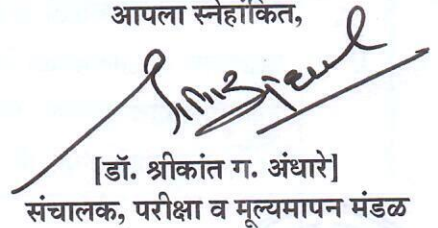 आपला स्नेहांकित,
[डॉ. श्रीकांत ग. अंधारे]
संचालक, परीक्षा व मूल्यमापन मंडळ